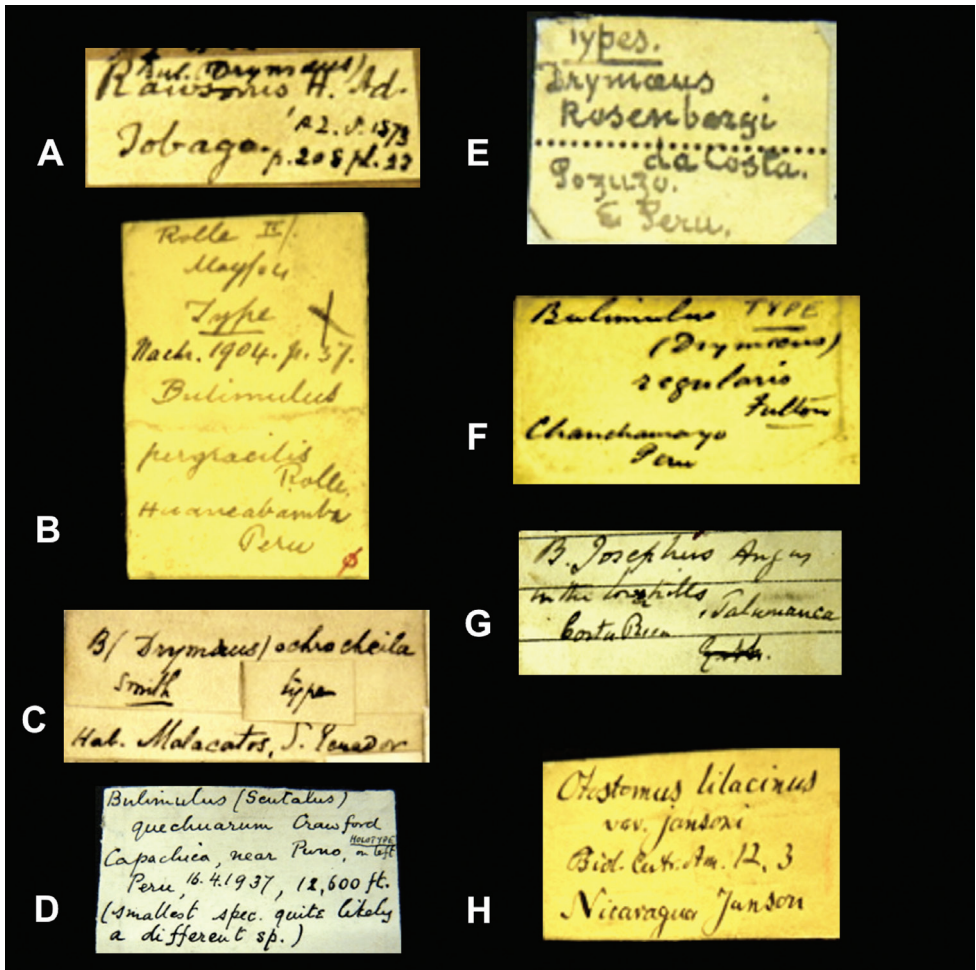 A
Bul. (Drymæus)
Rawsonis H. Ad.
P.Z.S. 1873
Tobago. p. 208 pl. 23
B
Rolle
May/04
Type
Nachr. 1904. p. 37.
Bulimulus
pergracilis
Rolle.
Huancabamba
Peru
C
B/ Drymæus/ ochrocheila
Smith type
Hab. Malacatos, S. Ecuador
D
Bulimulus (Scutalus)
quechuarum Crawford
HOLOTYPE
Capachica, near Puno, on left
Peru, 16.4.1937, 12,600 ft.
(smallest spec. quite likely
a different sp.)
E
Types.
Drymæus
Rosenbergi
da Costa.
Pozuzo.
E Peru.
F
Bulimulus TYPE
(Drymæus)
regularis
Fulton
Chanchamayo
Peru
G
B. Josephus Angas
in the low hills
, Talamanca
Costa Rica
H
Otostomus lilacinus
var. jansoni
Biol. Cntr. Am. 12, 3
Nicaragua Janson